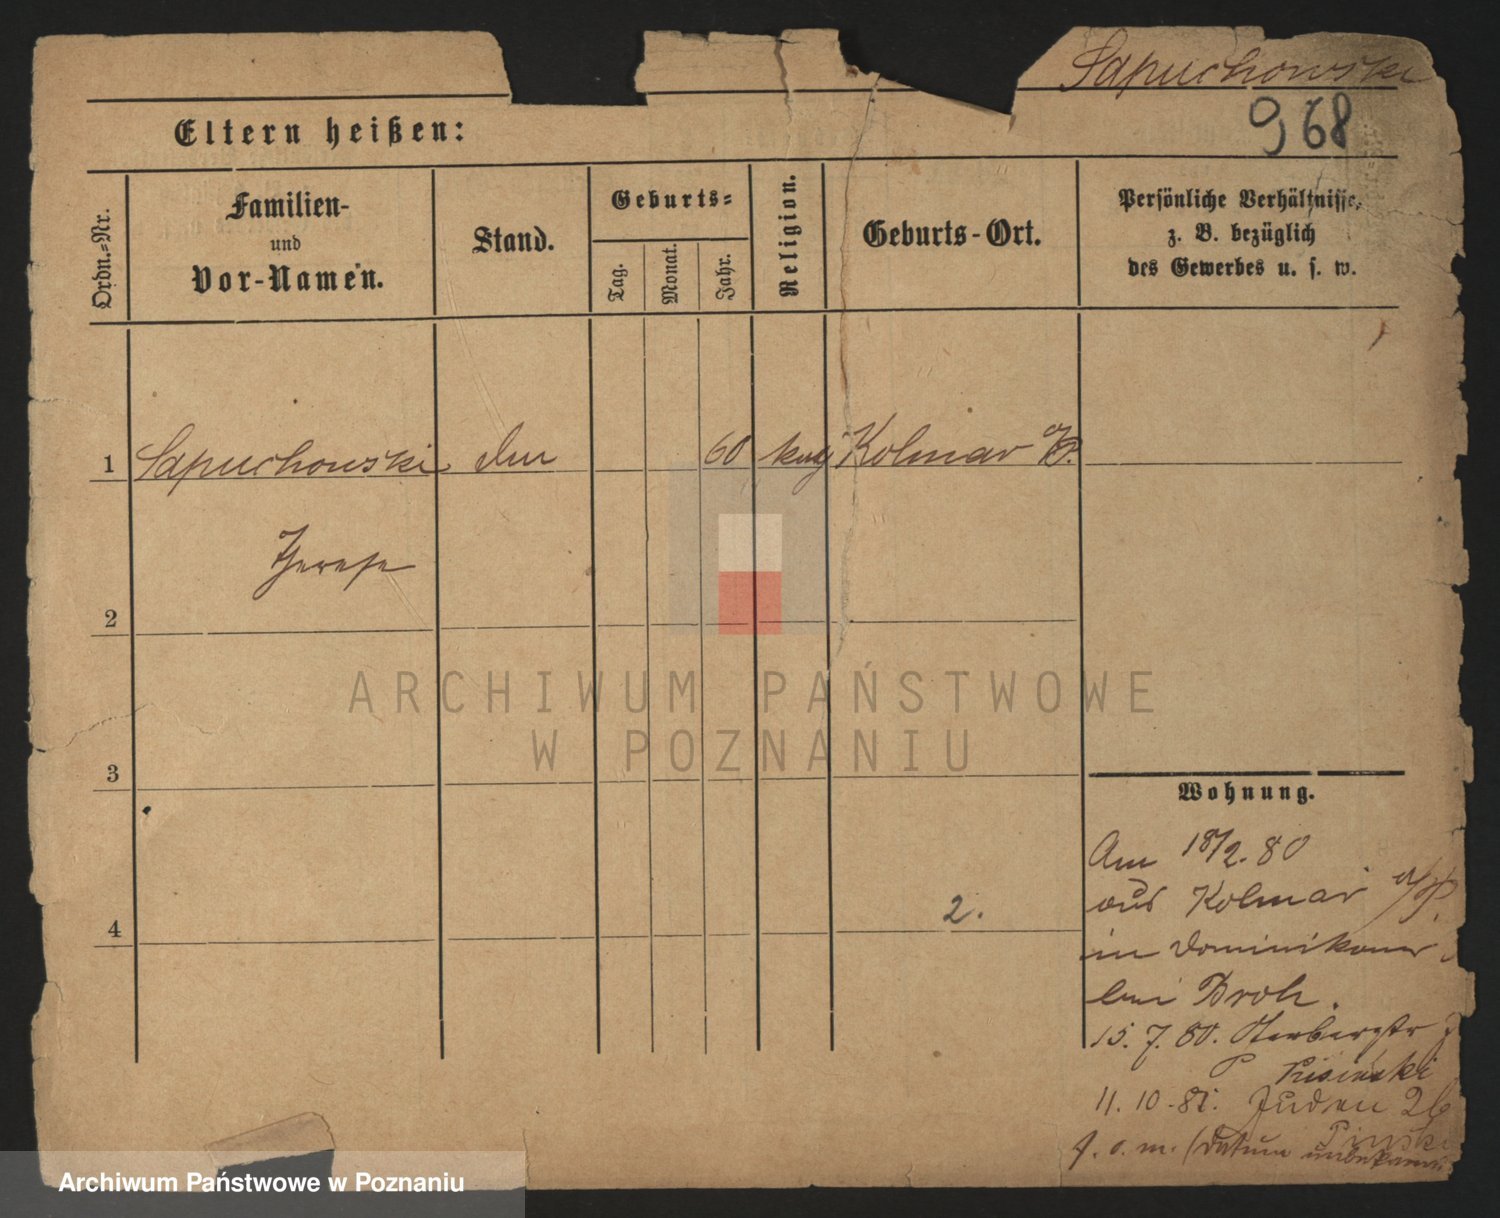 Sapuchowski
968
Eltern heißen:
Ordn.=Nr.
Familien-
und
Vor-Namen.
Stand.
Geburts=
Tag.
Monat.
Jahr.
Religion.
Geburts-Ort.
Persönliche Verhältnisse,
z. B. bezüglich
des Gewerbes u. s. w.
1 Sapuchowski 60 kath Kolmar a/P.
Therese
2
3
4
2.
Wohnung.
Am 18/2. 80
aus Kolmar a/P.
in Dominikaner
bei Broh.
15. 7. 80. Gerberstr
11. 10. 81. Juden 26
(Datum unbekannt
ARCHIWUM PAŃSTWOWE
W POZNANIU
Archiwum Państwowe w Poznaniu